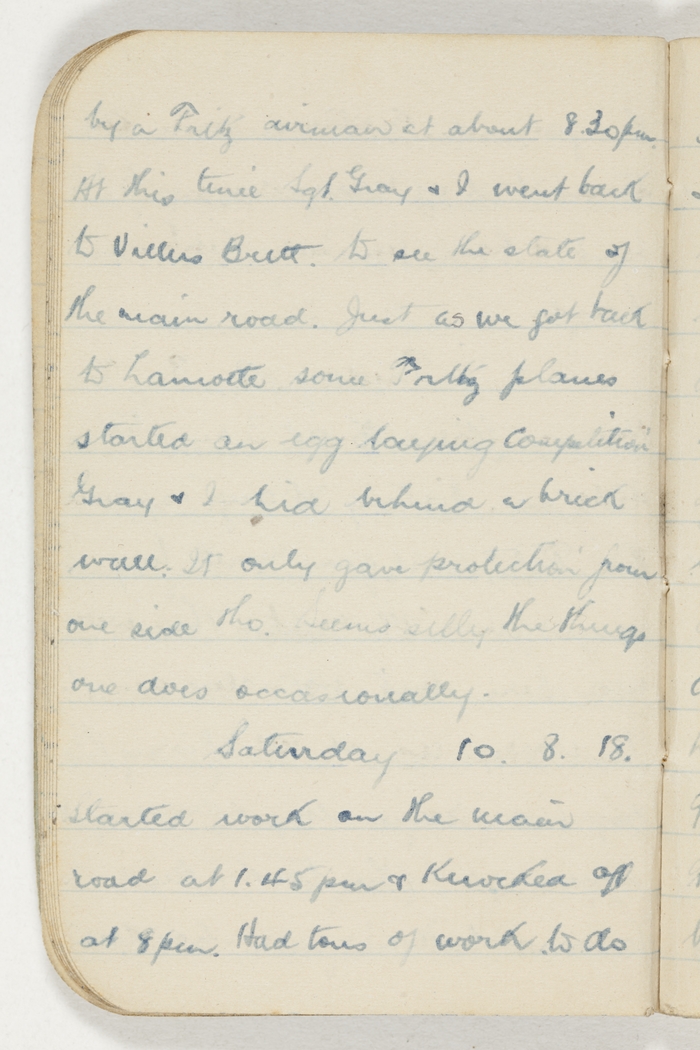 by a Fritz airman at about 8.30 pm.
At this time Sgt. Gray & I went back
to Villers Brett. to see the state of
the main road. Just as we got back
to Lamotte some Fritz planes
started an egg laying competition
Gray & I hid behind a brick
wall. It only gave protection from
one side tho. Seems silly the things
one does occasionally.
Saturday 10. 8. 18.
started work on the main
road at 1.45 pm & Knocked off
at 8 pm. Had tons of work to do